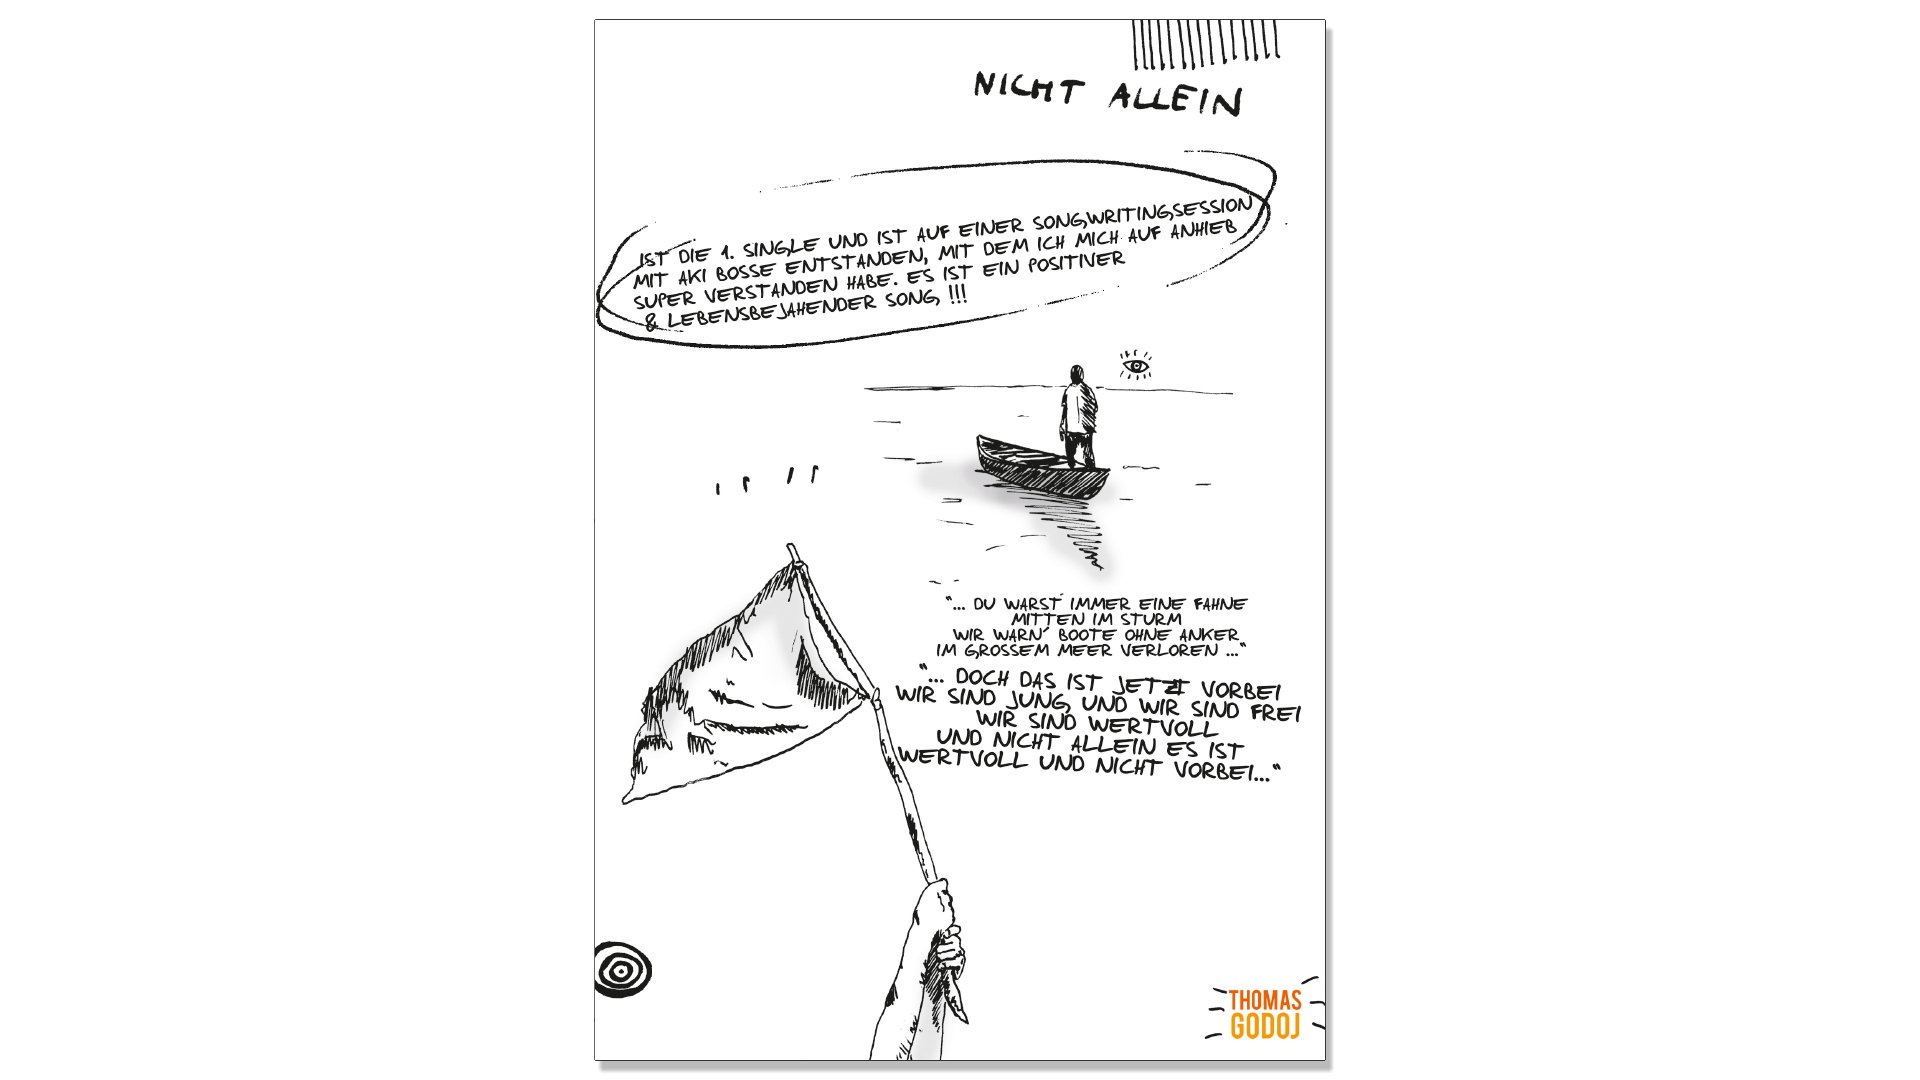 NICHT ALLEIN
IST DIE 1. SINGLE UND IST AUF EINER SONGWRITINGSESSION
MIT AKI BOSSE ENTSTANDEN, MIT DEM ICH MICH AUF ANHIEB
SUPER VERSTANDEN HABE. ES IST EIN POSITIVER
& LEBENSBEJAHENDER SONG !!!
"... DU WARST IMMER EINE FAHNE
MITTEN IM STURM
WIR WARN´ BOOTE OHNE ANKER
IM GROSSEM MEER VERLOREN ..."
"... DOCH DAS IST JETZT VORBEI
WIR SIND JUNG, UND WIR SIND FREI
WIR SIND WERTVOLL
UND NICHT ALLEIN ES IST
WERTVOLL UND NICHT VORBEI..."
THOMAS
GODOJ